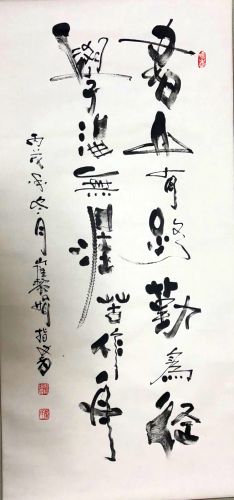 書山有路勤為徑
學海無涯苦作舟
丙戌年冬月崔黎指書